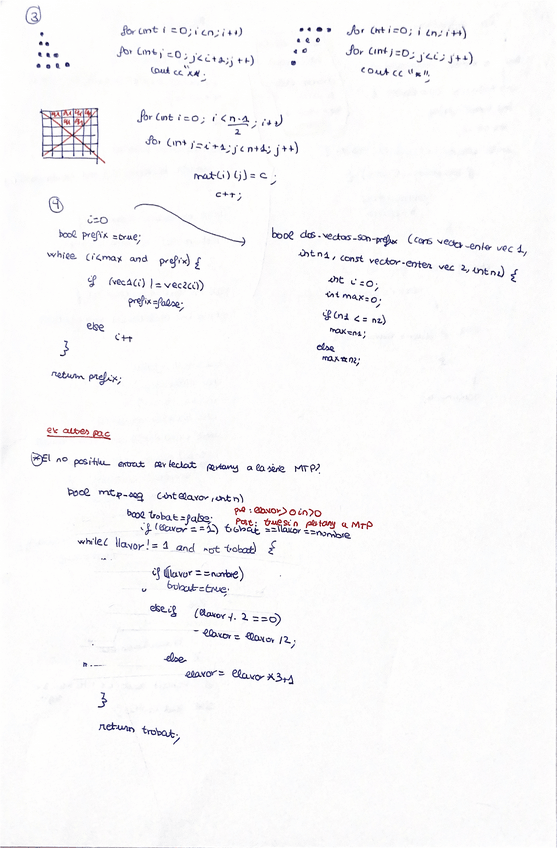 ③
for (int i=0; i<n; i++)
for (int j=0; j<i+1; j++)
cout << "*";
for (int i=0; i<n; i++)
for (int j=0; j<i; j++)
cout << "*";
for (int i=0; i<n-1/2; i++)
for (int j=i+1; j<n+1; j++)
mat(i)(j)=c;
c++;
④
i=0
bool prefix=true;
while (i<max and prefix) {
if (vec1(i) != vec2(i))
prefix=false;
else
i++
}
return prefix;
bool dos-vectors-son-prefix (cons vector-enter vec 1,
int n1, const vector-enter vec 2, int n2) {
int i=0;
int max=0;
if (n1 <= n2)
max=n1;
else
max=n2;
ex altres pac
El no positiu entrat per teclat pertany a la sèrie MTP?
bool mtp-seq (int llavor, int n)
pre: llavor>0 i n>0
bool trobat=false;
Post: true si n pertany a MTP
if (llavor==1) trobat ==llavor==nombre
while( llavor!=1 and not trobat) {
if (llavor==nombre)
trobat=true;
else if (llavor % 2 ==0)
llavor= llavor /2;
else
llavor= llavor *3+1
}
return trobat;